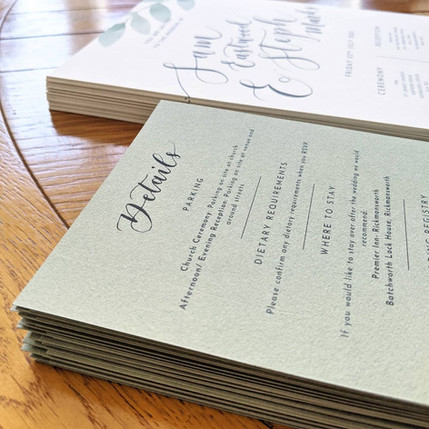 Sam
Eastwood
& Steph
FRIDAY
CEREMONY
RECEPTION
Details
PARKING
Church Ceremony: Parking on site at church
Afternoon/ Evening Reception: Parking on site at venue and
around streets
DIETARY REQUIREMENTS
Please confirm any dietary requirements when you RSVP
WHERE TO STAY
If you would like to stay over after the wedding we would
recommend:
Premier Inn: Rickmansworth
Batchworth Lock House, Rickmansworth
REGISTRY